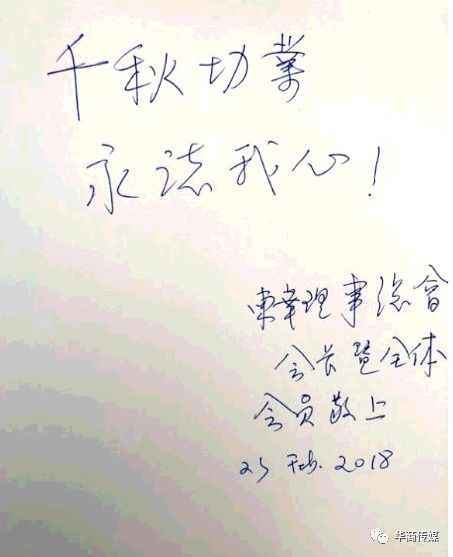 千秋功業
永誌我心!
柬華理事總會
会长暨全体
会员敬上
23 Feb. 2018
华商传媒